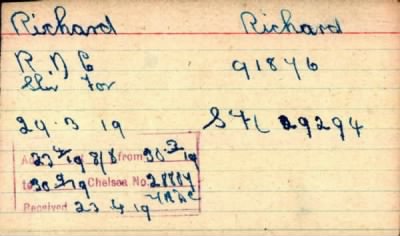 Richard Richard
R N C 91876
Shr For
29 . 3 19 SFL 29294
27 19 8/8 from 30 19
to 30 19 Chelsea No. 28884
Received 23 4 19